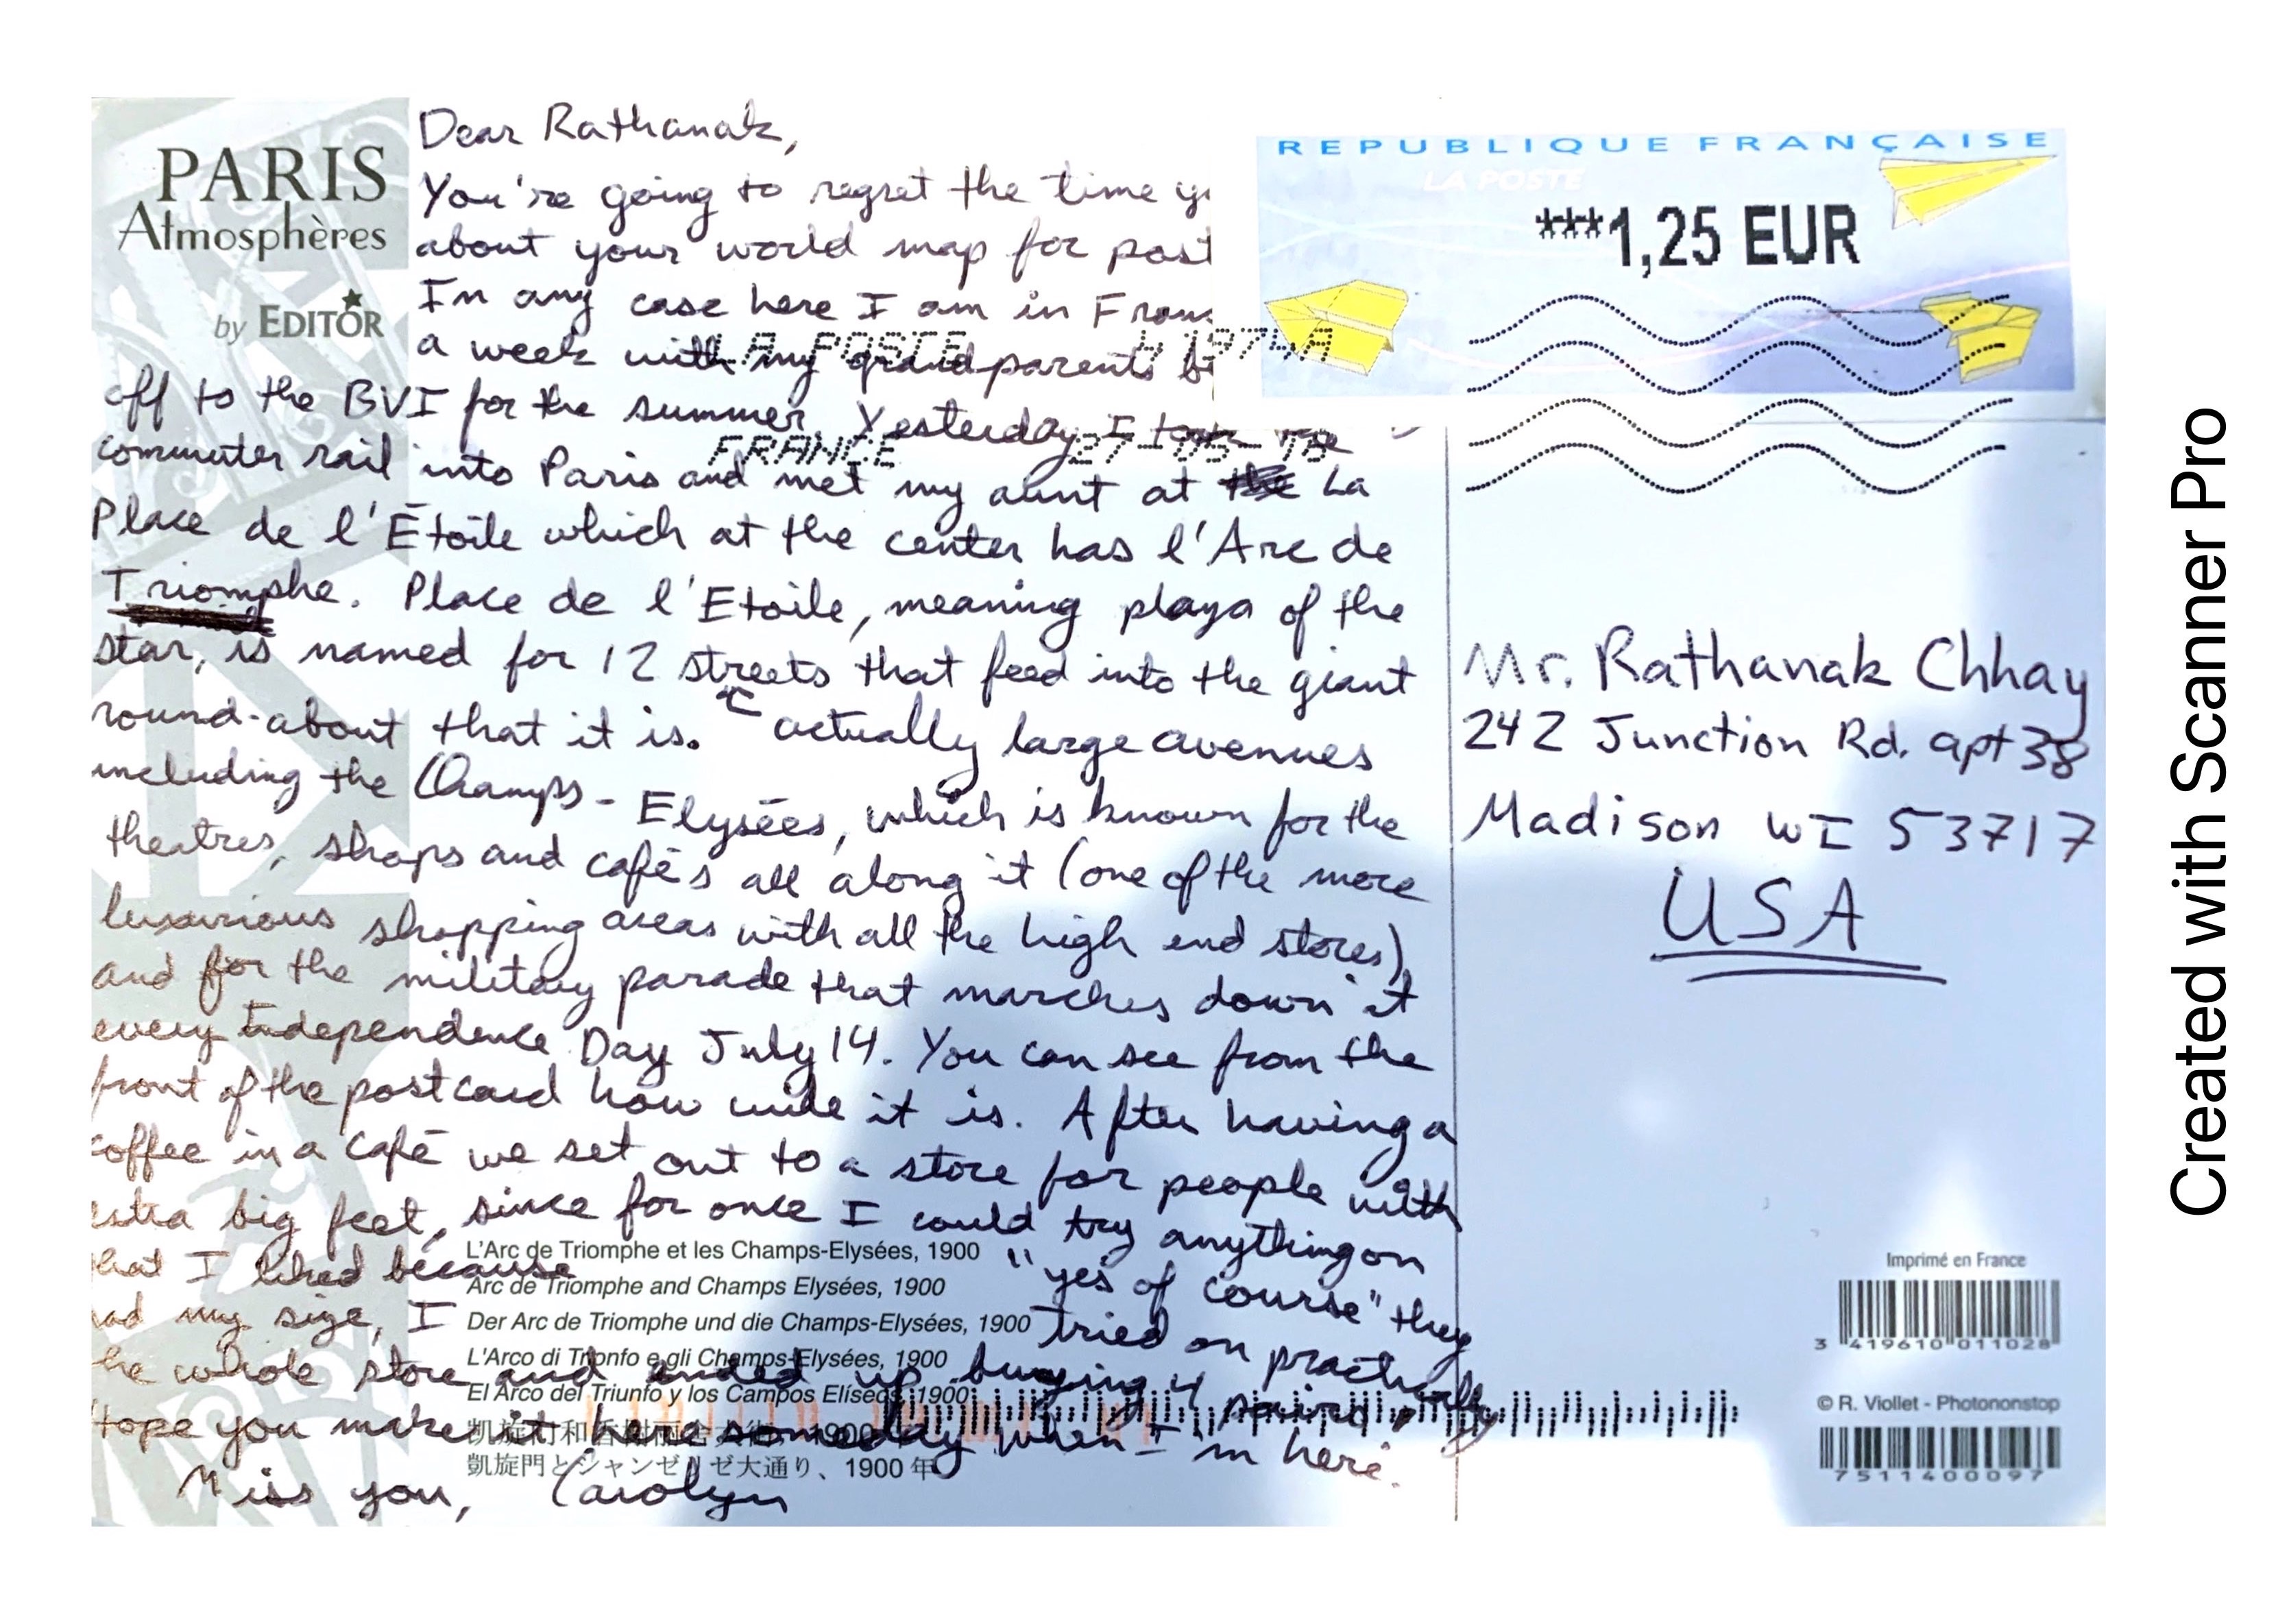 PARIS
Atmosphères
by EDITOR
Dear Rathanak,
You're going to regret the time
about your world map for post
In any case here I am in
a week with my grandparents
off to the BVI for the summer. Yesterday I took the
commuter rail into Paris and met my aunt at La
Place de l'Étoile which at the center has l'Arc de
Triomphe. Place de l'Etoile, meaning playa of the
star, is named for 12 streets that feed into the giant
round-about that it is. actually large avenues
including the Champs-Elysées, which is known for the
theatres, shops and cafés all along it (one of the more
luxurious shopping areas with all the high end stores)
and for the military parade that marches down it
every Independence Day July 14. You can see from the
front of the postcard how wide it is. After having a
coffee in a café we set out to a store for people with
extra big feet, since for once I could try anything on
that I liked because "yes of course" they
had my size, I tried on practically
the whole store and ended up buying 4 pairs.
Hope you make it here someday when I'm here.
Miss you, Carolyn
REPUBLIQUE FRANÇAISE
LA POSTE
***1,25 EUR
LA POSTE 41974A
FRANCE
Mr. Rathanak Chhay
242 Junction Rd. apt 38
Madison WI 53717
USA
L'Arc de Triomphe et les Champs-Elysées, 1900
Arc de Triomphe and Champs Elysées, 1900
Der Arc de Triomphe und die Champs-Elysées, 1900
L'Arco di Trionfo e gli Champs-Elysées, 1900
El Arco del Triunfo y los Campos Elíseos, 1900
凱旋門とシャンゼリゼ大通り、1900 年
Imprimé en France
3 419610 011028
© R. Viollet - Photononstop
7511400097
Created with Scanner Pro